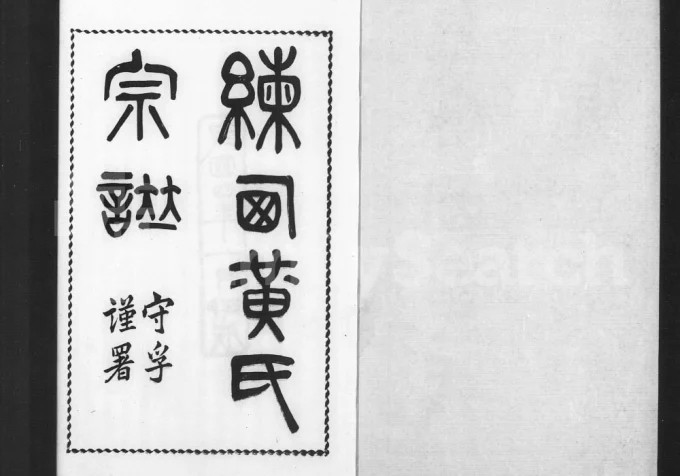 練西黃氏
宗譜
守孚
謹署